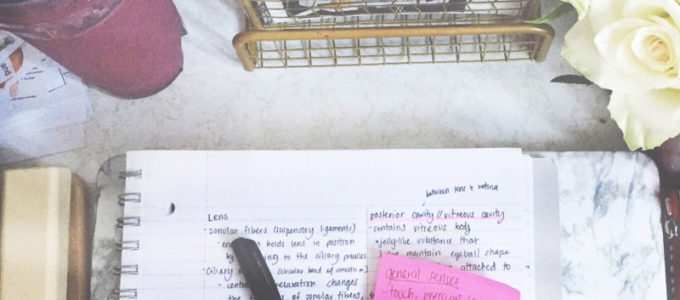 Lens
-zonular fibers (suspensory ligaments)
holds lens in position
to the ciliary processes
Ciliary (circular band of smooth
relaxation changes
the of zonular fibers,
between lens & retina
posterior cavity//vitreous cavity
-contains vitreous body
•jelly-like substance that
maintain eyeball shape
attached to
general senses
-touch, pressure